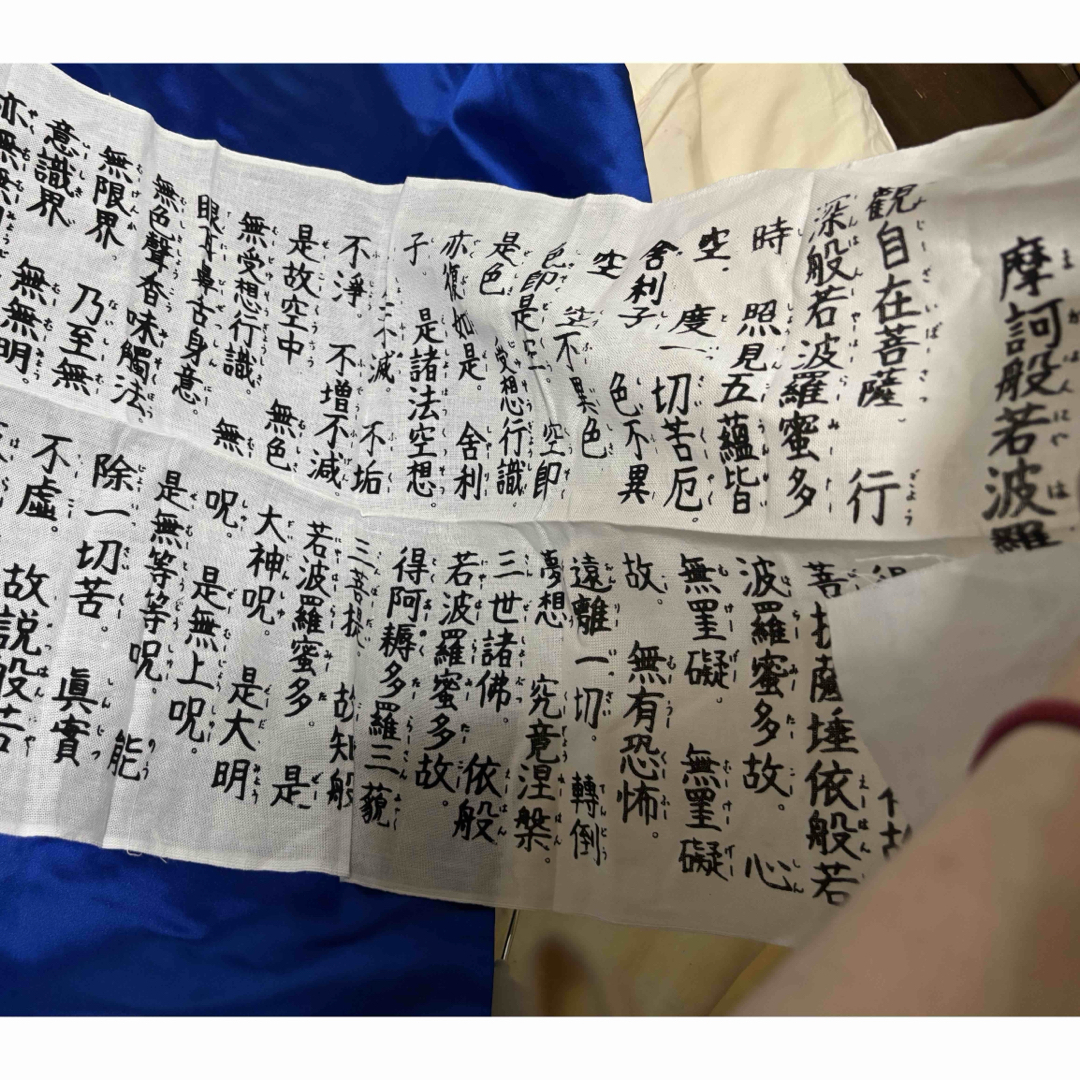 摩訶般若波羅
觀自在菩薩、 行
深般若波羅蜜多
時 照見五蘊皆
空、 度一切苦厄。
舍利子 色不異
空 空不異色
色即是空 空即
是色 受想行識。
亦復如是。 舍利
子。 是諸法空想
不滅 不垢
不淨。 不增不減。
是故空中 無色
無受想行識。 無
眼耳鼻舌身意。
無色聲香味觸法。
無限界。 乃至無
意識界
亦無無明。
菩提薩埵依般若
波羅蜜多故。 心
無罣礙。 無罣礙
故。 無有恐怖。
遠離一切。 轉倒
夢想 究竟涅槃。
三世諸佛。 依般
若波羅蜜多故。
得阿耨多羅三藐
三菩提 故知般
若波羅蜜多。 是
大神呪。 是大明
呪。 是無上呪。
是無等等呪。 能
除一切苦。 眞實
不虛。 故説般若